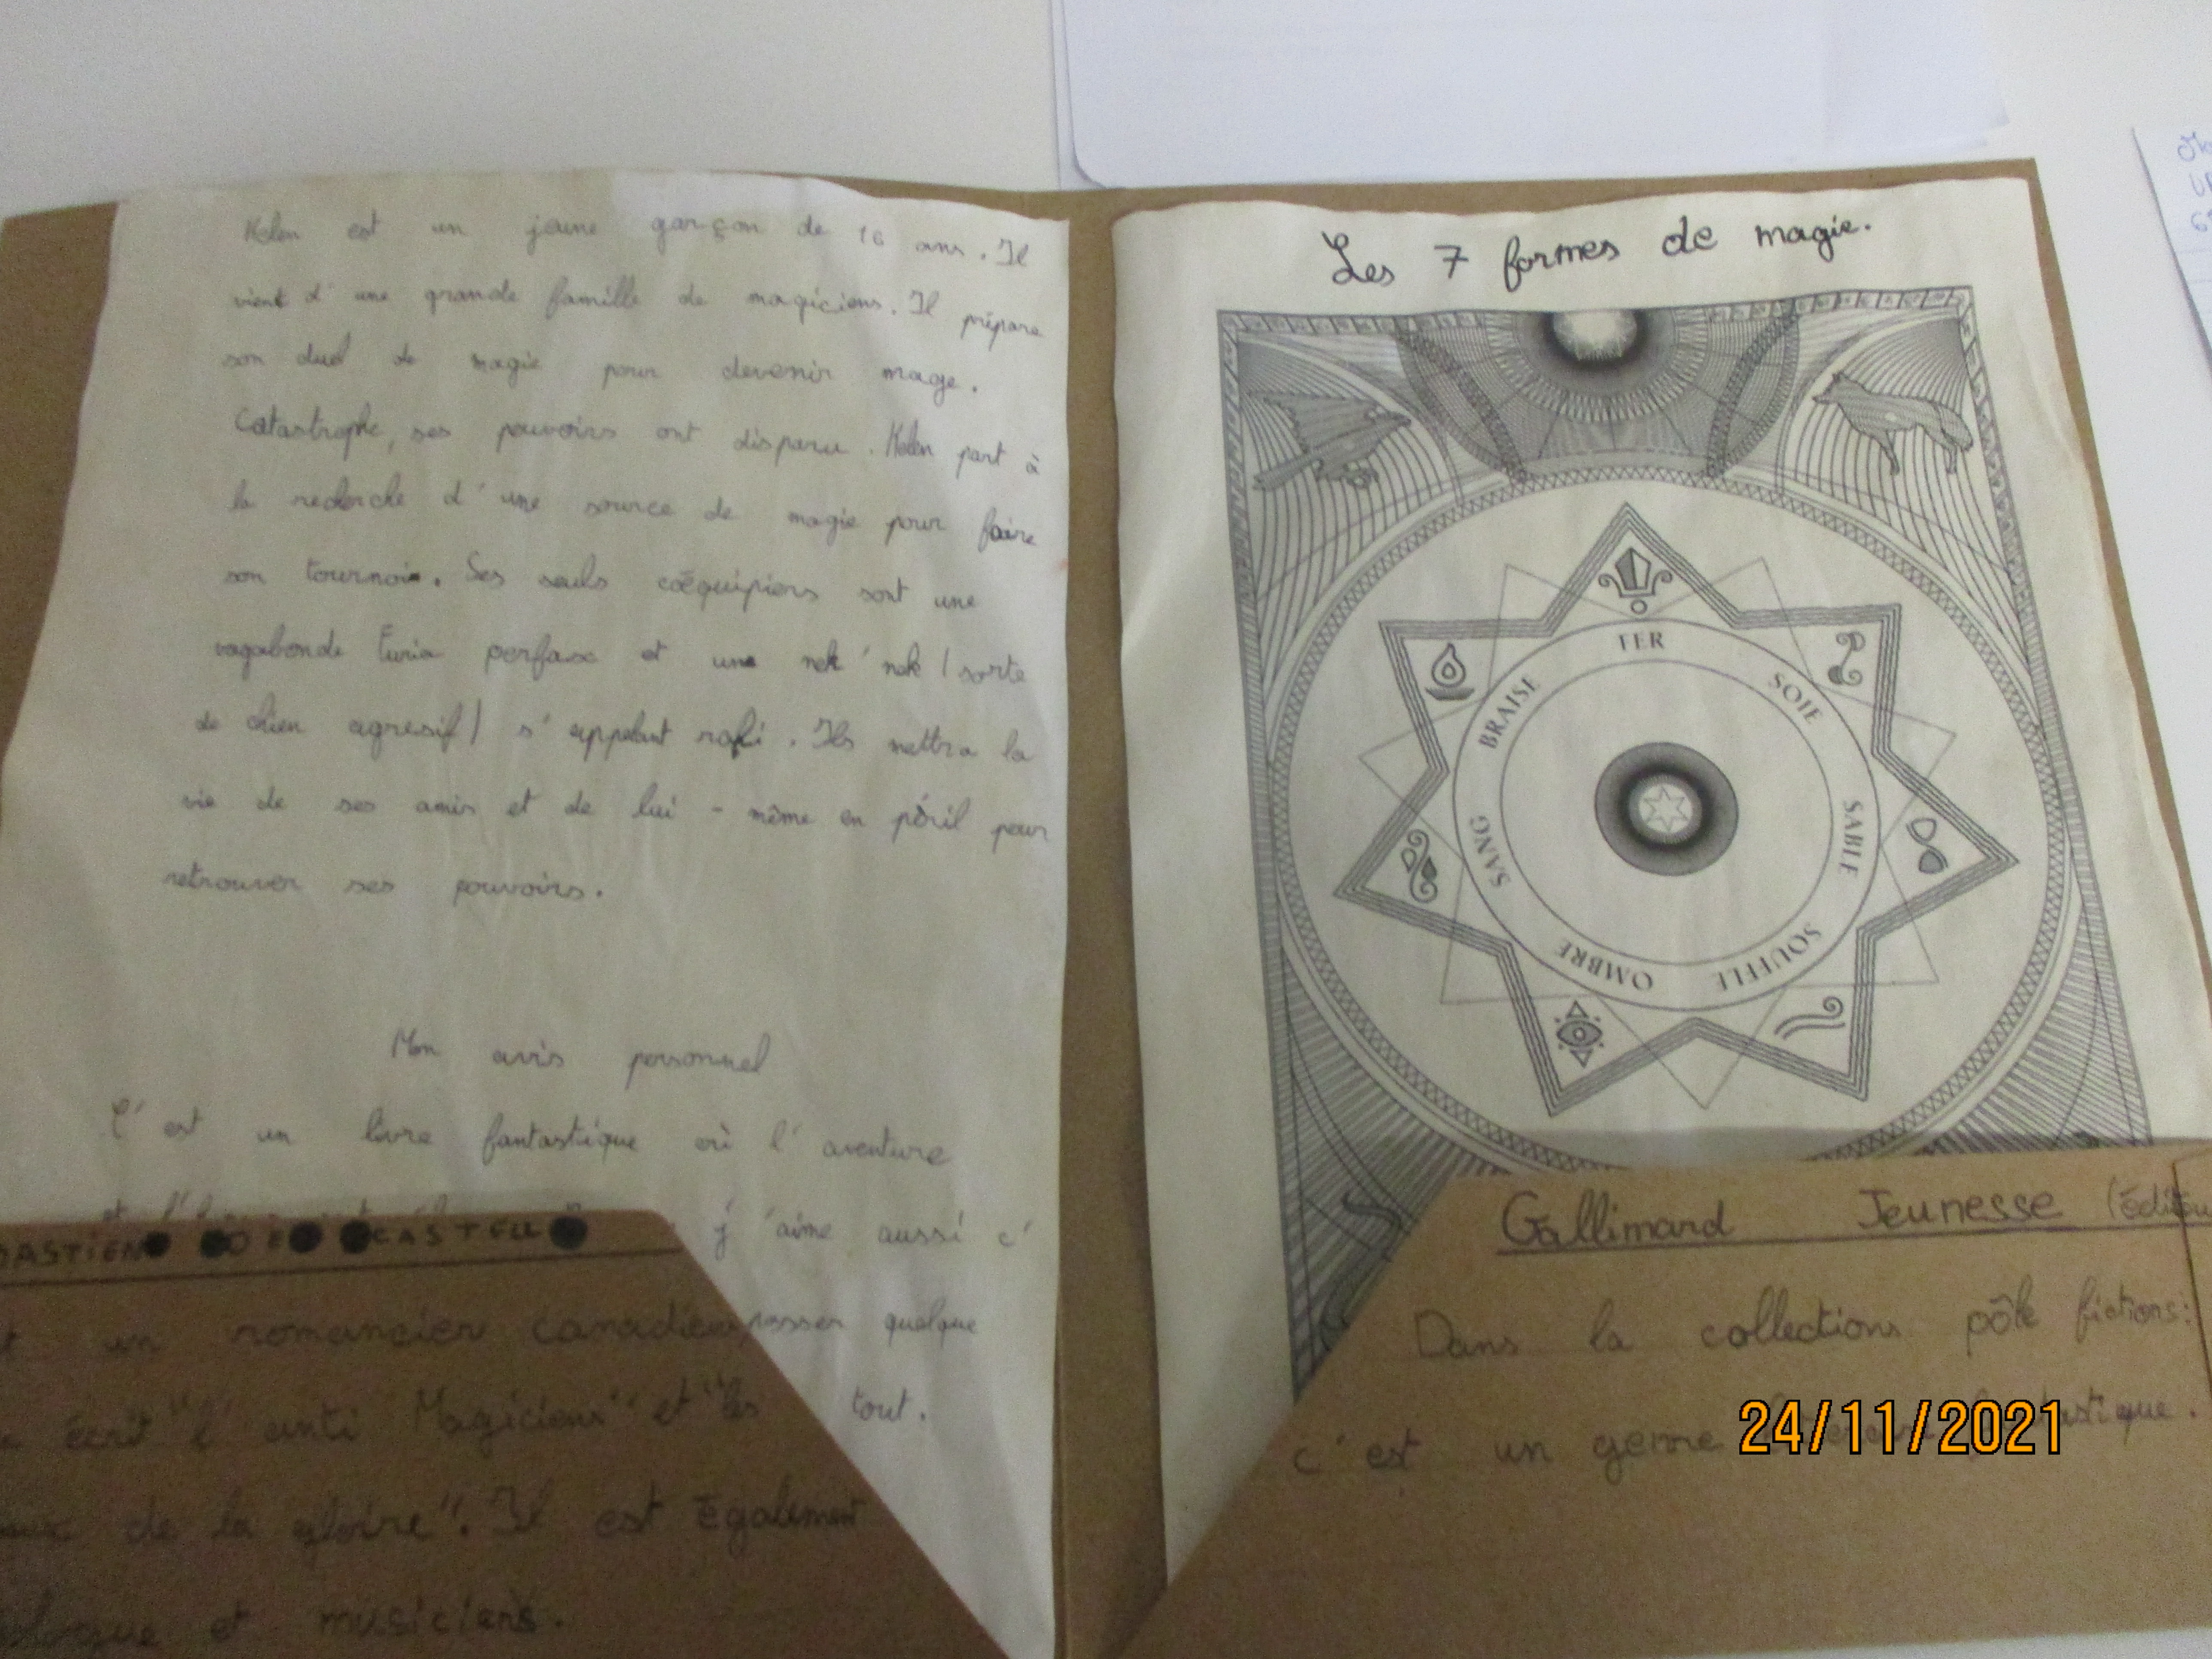 Kelen est un jeune garçon de 16 ans. Il
vient d'une grande famille de magiciens. Il prépare
son duel de magie pour devenir mage.
Catastrophe, ses pouvoirs ont disparu. Kelen part à
la recherche d'une source de magie pour faire
son tournoi. Ses seuls coéquipiers sont une
vagabonde Furia perfaxe et une nek'nek (sorte
de chien agresif) s'appelant
Ils mettra la
vie de ses amis et de lui-même en péril pour
retrouver ses pouvoirs.
Mon avis personnel
C'est un livre fantastique où l'aventure
j'aime aussi c'
passer quelque
tout.
DASTIEN DE CASTELL
un romancier canadien
écrit "l'anti Magicien" et "les
de la gloire". Il est également
et musiciens.
Les 7 formes de magie.
FER
SOIE
SABLE
SOUFFLE
OMBRE
SANG
BRAISE
Gallimard Jeunesse
Dans la collections pôle fictions:
c'est un genre
24/11/2021